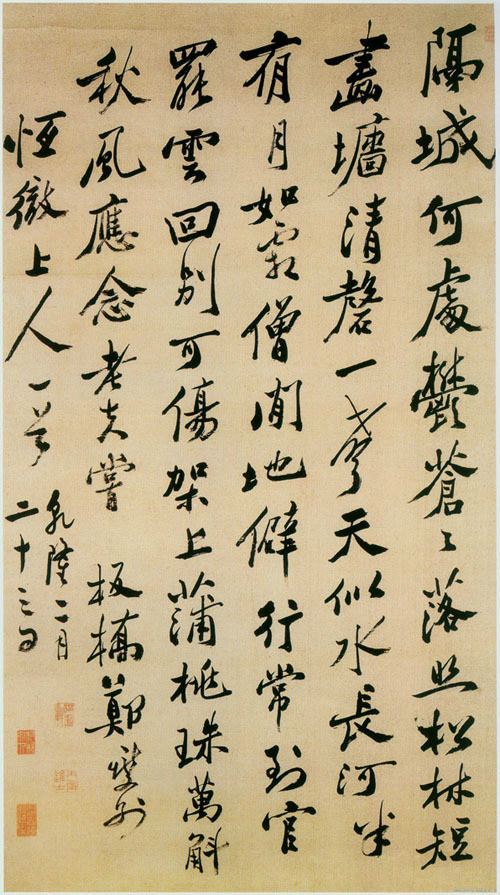 隔城何處鬱蒼々落照松林短
畫墻清磬一聲天似水長河半
有月如霜僧閒地僻行常到官
罷雲回別可傷架上蒲桃珠萬斛
秋風應念老夫嘗 板橋鄭燮
恒徹上人一笑
乾隆二月
二十三日